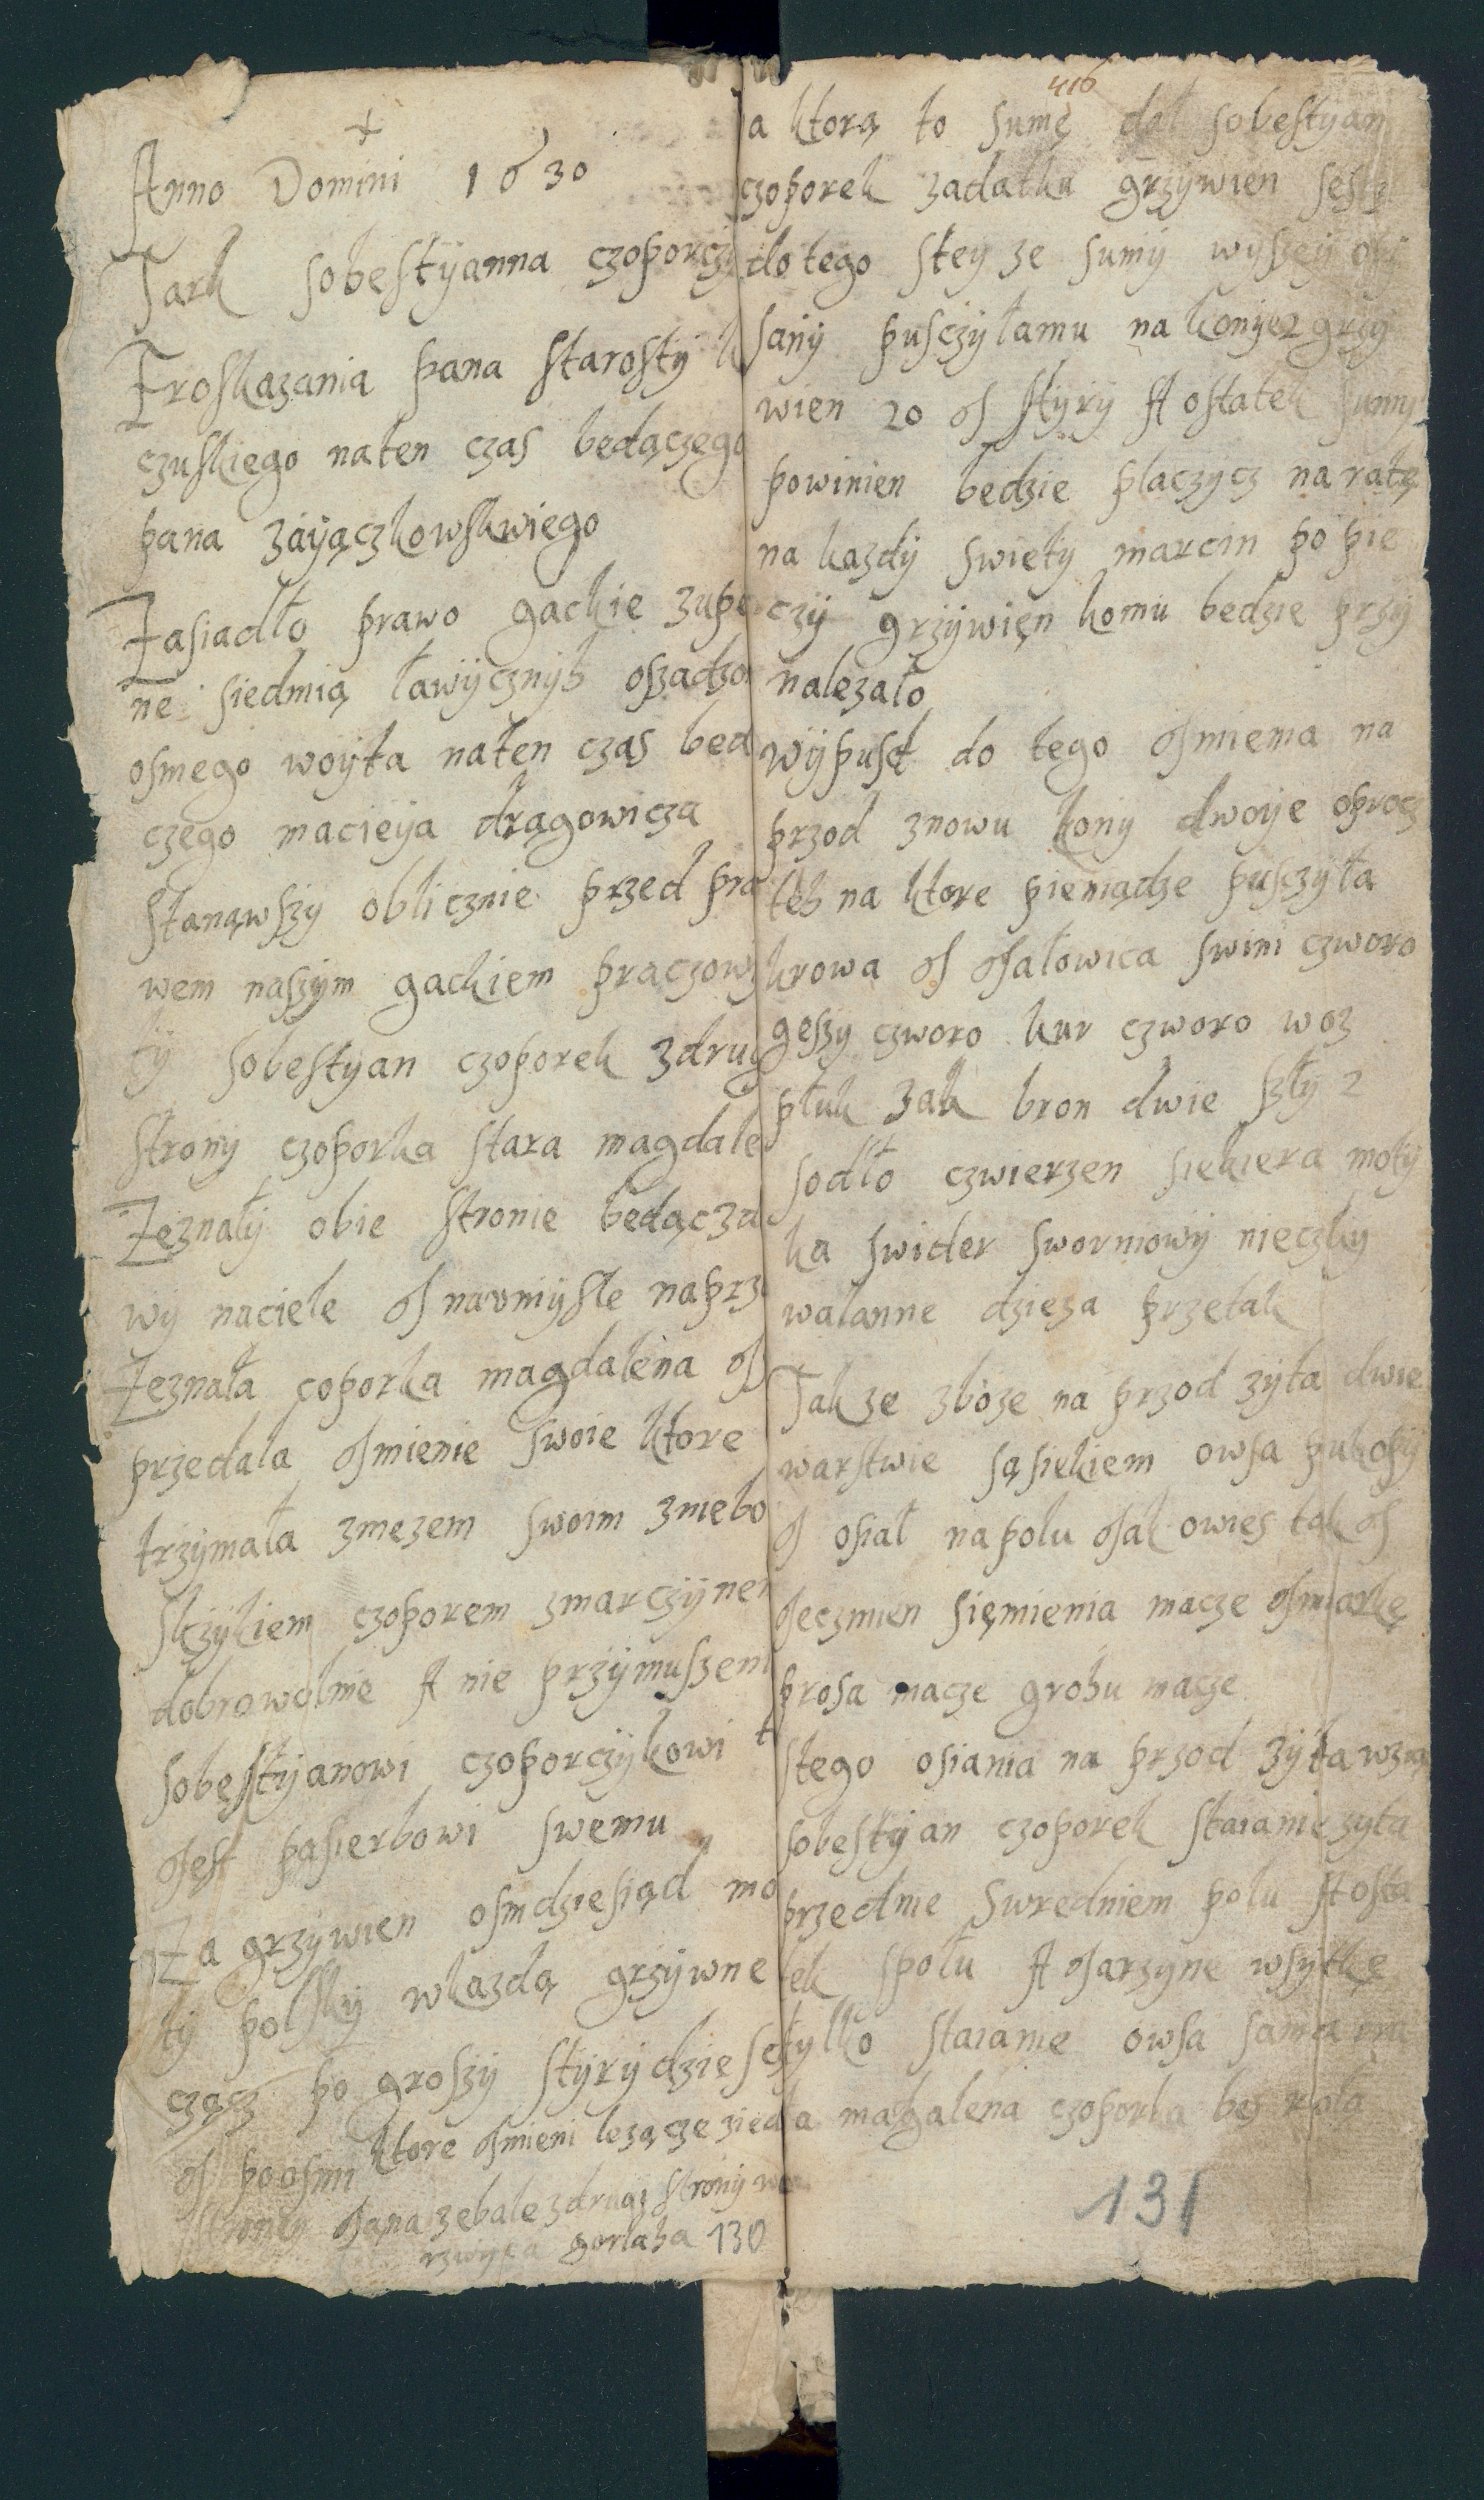 +
Anno Domini 1630
Tark sobestyanna czoporczy
Froskazania pana starosty k
czuskiego naten czas bedączego
pana záyączkowskwiego
Zasiadło prawo gackie zupe
ne siedmią ławycznyh oszadzo
osmego woyta naten czas bed
czego macieya drągowicza
stanąwszy oblicznie przed pra
wem naszym gackiem praczowi
ty sobestyan czoporek zdrug
strony czoporka stara magdale
Zeznały obie stronie bedącza
wy naciele y na vmysle naprz
Zeznała coporka magdalena yz
przedała ymienie swoie ktore
trzymała zmezem swoim zniebo
sczykiem czoporem zmarczynem
dobrowolnie A nie przymuszeni
sobestyanowi czoporczykowi t
yest pasierbowi swemu
Za grzywien osmdziesiąd mo
ty polsky wkazdą grzywne
czącz po groszy styrydzies
y poosmi ktore ymieni lezącze zied
strony yana zebale zdrugi strony
gorlaha 130
416
a ktorą to sumę dał sobestyan
czoporek zadatku grzywien sesc
do tego stey ze sumy wyszey opi
sany pusczyłamu na konye 2 grzy
wien 20 y styry A ostatek sumy
powinien bedzie płaczycz na ratę
na kazdy swiety marcin po pie
czy grzywien komu bedzie przy
nalezało
wypust do tego ymienia na
przod znowu kony dwoye oprocz
teh na ktore pieniądze pusczyła
krowa y yałowica swini czworo
geszy czworo kur czworo woz
płuk zak bron dwie szły 2
sodło czwierzen siekiera moty
ka swider swornowy nieczky
walanne dzieza przetak
Takze zboze na przod zyta dwie
warstwie sąsiekiem owsa pukopy
y osiał na polu yak owies tak y
yeczmien siemienia macze ymarkę
prosa macze grohu macze
stego osiania na przod zyta wzią
sobestyan czoporek staianie zyta
przednie swredniem polu A osta
tek społu A yarzyne wsytkę
tylko staianie owsa sama ma
a magalena czoporka bez rola
131